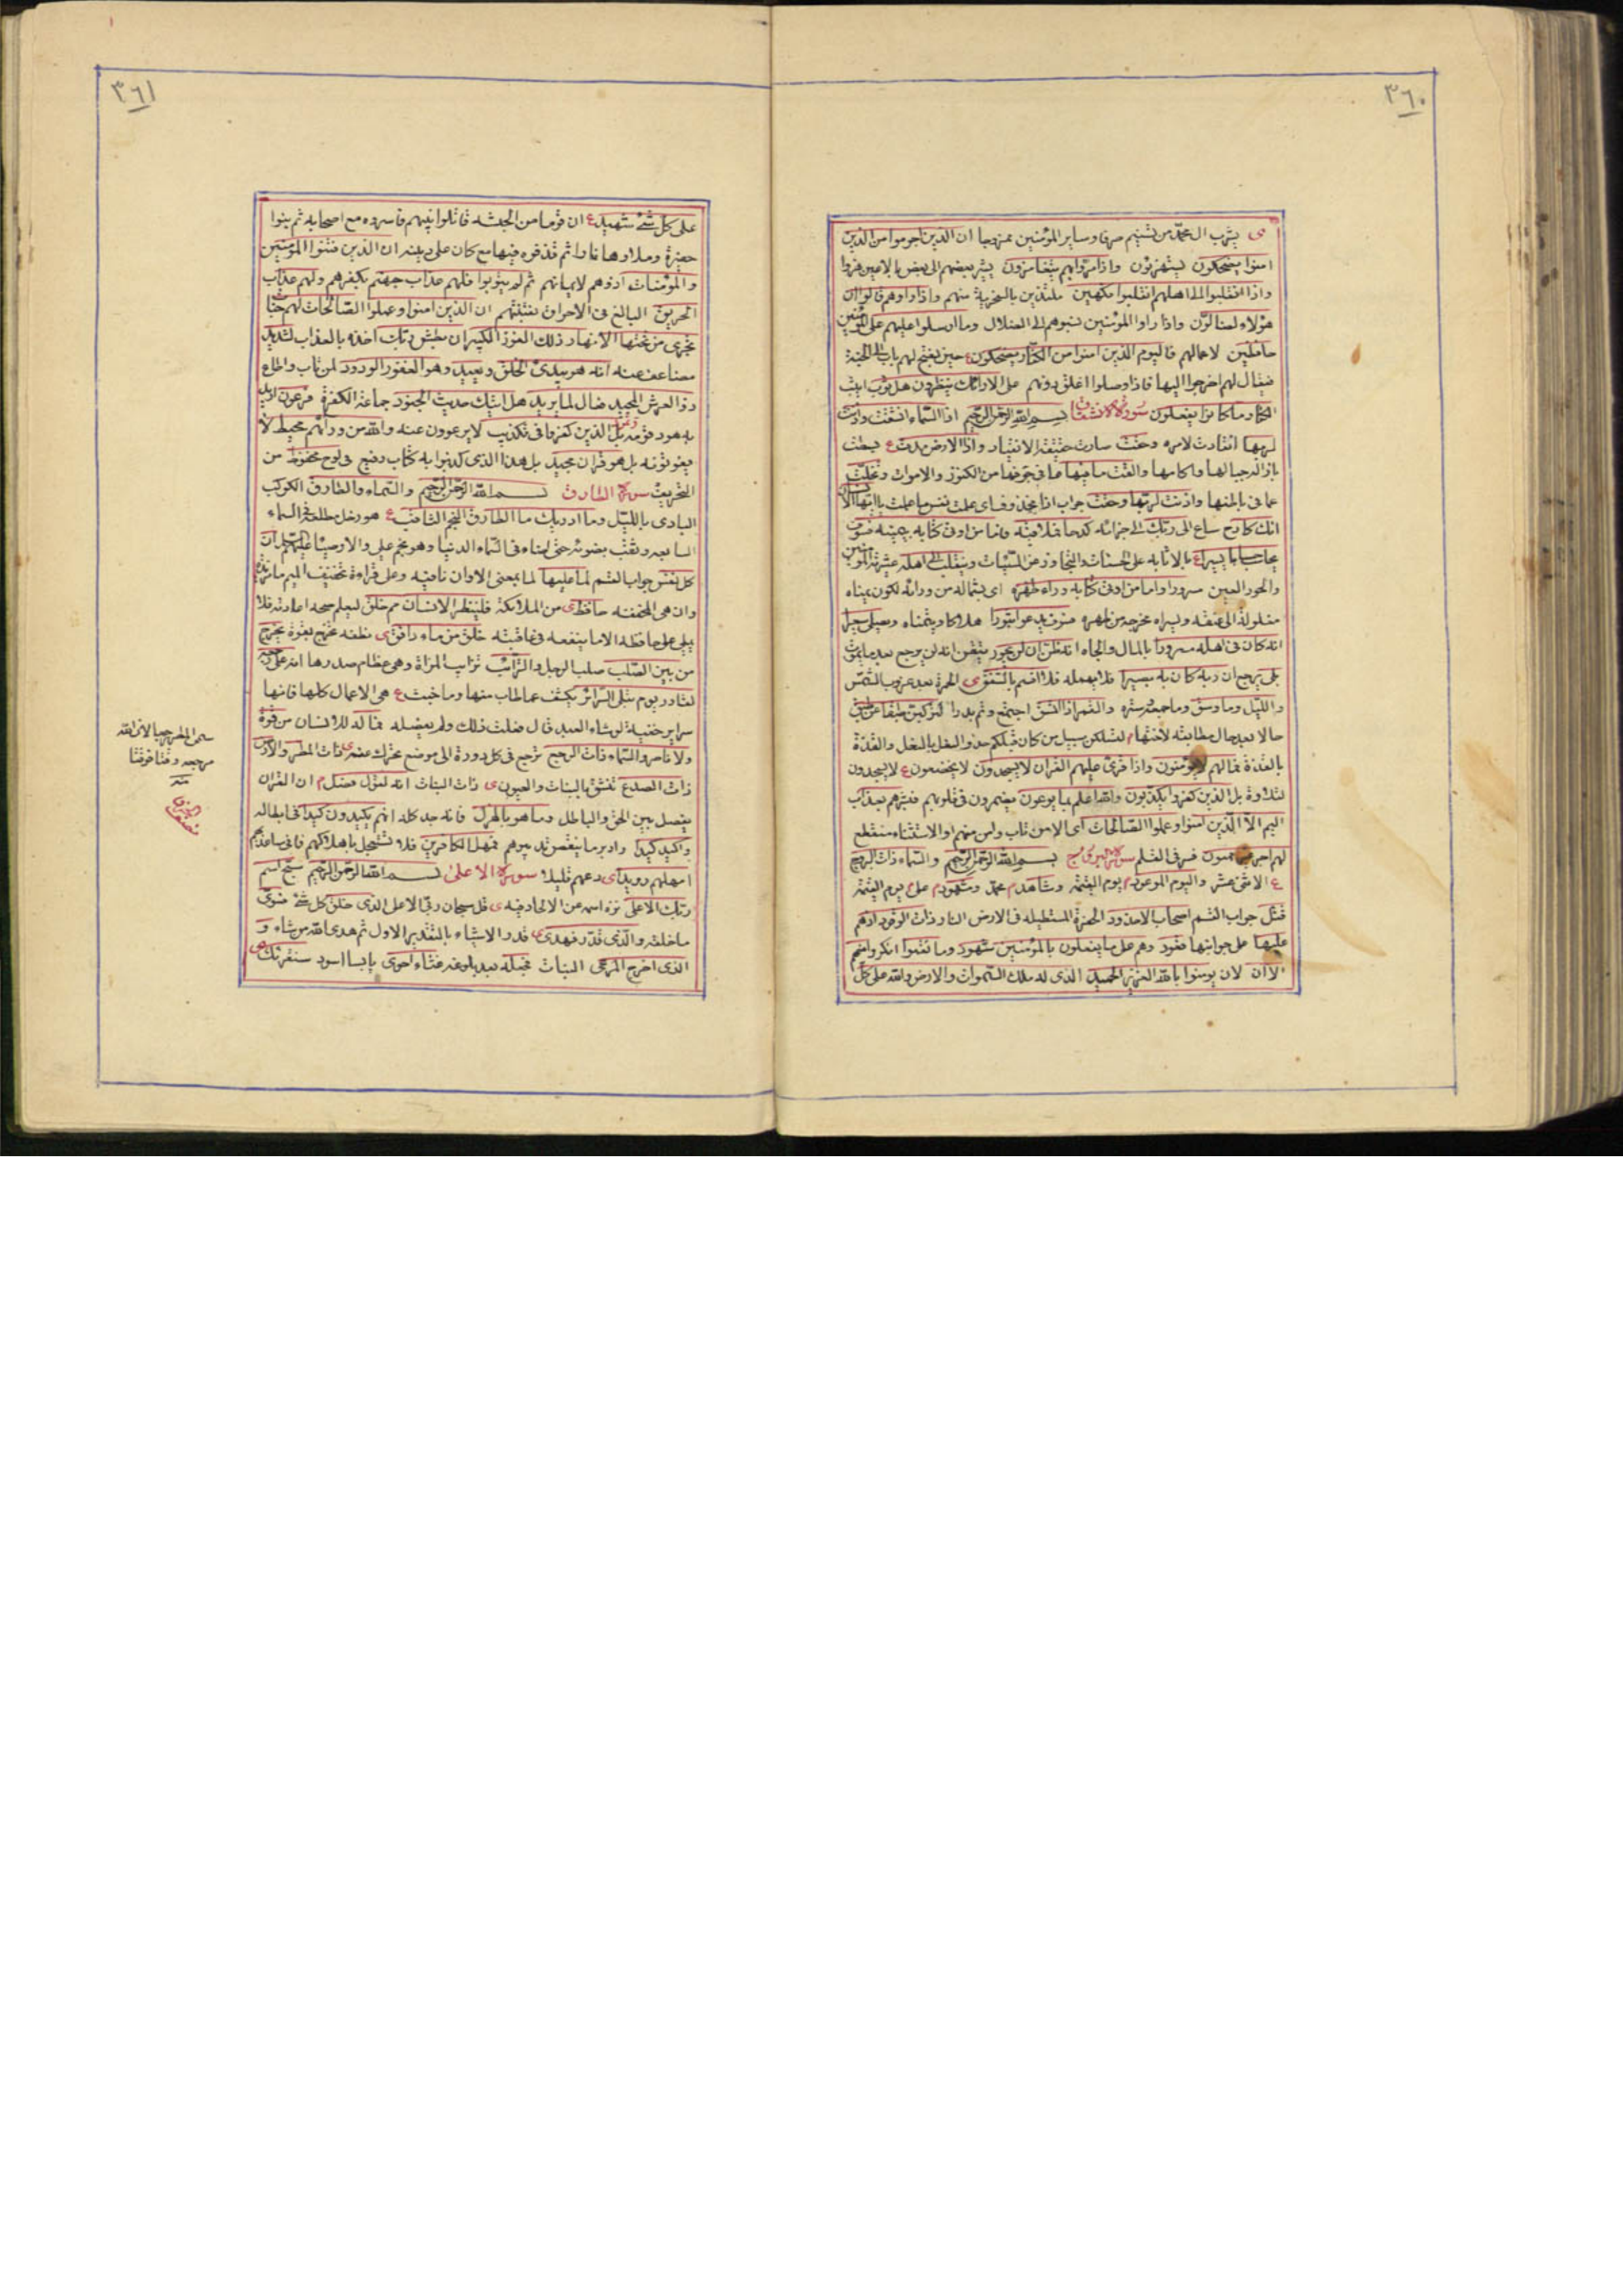 ٣٦٠
ى يشرب ال محمد من تسنيم صرفا وساير المؤمنين ممزوجا ان الذين اجرموا من الذين
امنوا يضحكون يستهزؤن واذا مروا بهم يتغامزون يشير بعضهم الى بعض بالاعين هزوا
واذا انقلبوا الى اهلهم انقلبوا فكهين ملتذين بالسخرية منهم واذا راوهم قالوا ان
هؤلاء لضالون واذا راوا المؤمنين نسبوهم الى الضلال وما ارسلوا عليهم على المؤمنين
حافظين لاعمالهم فاليوم الذين امنوا من الكفار يضحكون ع حين يفتح لهم باب الى الجنة
فيقال لهم اخرجوا اليها فاذا وصلوا اغلق دونهم على الارائك ينظرون هل ثوب اثيب
الكفار ما كانوا يفعلون سورة الانشقاق بسم الله الرحمن الرحيم اذا السماء انشقت واذنت
لربها انقادت لامره وحقت سارت حقيقة الانقياد واذا الارض مدت ع بسطت
بازالة جبالها واكامها والقت ما فيها ما في جوفها من الكنوز والاموات وتخلت
عما في باطنها واذنت لربها وحقت جواب اذا محذوف اي علمت نفس ما عملت يا ايها الانسان
انك كادح ساع الى ربك الى جزائه كدحا فملاقيه فاما من اوتى كتابه بيمينه فسوف
يحاسب حسابا يسيرا ع بالاثابه على الحسنات والتجاوز عن السيئات وينقلب الى اهله عشيرته المؤمنين
والحور العين مسرورا واما من اوتى كتابه وراء ظهره اى بشماله من ورائه لكون يمناه
مغلولة الى عنقه ويسراه مخرجه من ظهره فسوف يدعوا ثبورا هلاكا ويتمناه ويصلى سعيرا
انه كان فى اهله مسرورا بالمال والجاه انه ظن ان لن يحور تيقن انه لن يرجع بعد ما يموت
بلى يرجع ان ربه كان به بصيرا فلا يهمله فلا اقسم بالشفق ى الحمرة بعد غروب الشمس
والليل وما وسق وما جمعه وستره والقمر اذا اتسق اجتمع وتم بدرا لتركبن طبقا عن طبق
حالا بعد حال مطابقة لاختها م لتسلكن سبيل من كان قبلكم حذو النعل بالنعل والقذة
بالقذة فما لهم لا يؤمنون واذا قرئ عليهم القران لا يسجدون لا يخضعون ع لا يسجدون
لتلاوة بل الذين كفروا يكذبون والله اعلم بما يوعون يضمرون فى قلوبهم فبشرهم بعذاب
اليم الا الذين امنوا وعملوا الصالحات اى الا من تاب وامن منهم او الاستثناء منقطع
لهم اجر غير ممنون فسر فى القلم سورة البروج بسم الله الرحمن الرحيم والسماء ذات البروج
ع الاثنى عشر واليوم الموعود م يوم القيمة وشاهد م محمد ومشهود م على م يوم القيمة
قتل جواب القسم اصحاب الاخدود الحفرة المستطيله فى الارض النار ذات الوقود اذ هم
عليها على جوانبها قعود وهم على ما يفعلون بالمؤمنين شهود وما نقموا انكروا منهم
الا ان لان يؤمنوا بالله العزيز الحميد الذى له ملك السموات والارض والله على كل
٣٦١
على كل شئ شهيد ع ان قوما من الحبشه قاتلوا نبيهم فاسروه مع اصحابه ثم بنوا
حفيرة وملاوها نارا ثم قذفوه فيها مع كان على دينه ان الذين فتنوا المؤمنين
والمؤمنات اذوهم لايمانهم ثم لم يتوبوا فلهم عذاب جهنم بكفرهم ولهم عذاب
الحريق البالغ فى الاحراق بفتنتهم ان الذين امنوا وعملوا الصالحات لهم جنات
تجرى من تحتها الانهار ذلك الفوز الكبير ان بطش ربك اخذه بالعذاب لشديد
مضاعف عنفه انه هو يبدئ الخلق ويعيد وهو الغفور الودود لمن تاب واطاع
ذو العرش المجيد فعال لما يريد هل اتيك حديث الجنود جماعة الكفرة فرعون اريد
به هو وقومه وثمود بل الذين كفروا فى تكذيب لا يرعوون عنه والله من ورائهم محيط لا
يفوتونه بل هو قران مجيد بل هذا الذى كذبوا به كتاب رفيع فى لوح محفوظ من
التحريف سورة الطارق بسم الله الرحمن الرحيم والسماء والطارق الكوكب
البادى بالليل وما ادريك ما الطارق النجم الثاقب ع هو زحل مطلعه فى السماء
السابعه وثقب بضوئه حتى اضاء فى السماء الدنيا وهو نجم على والاوصياء عليهم السلام ان
كل نفس جواب القسم لما عليها لما بمعنى الا وان نافيه وعلى قراءة تخفيف الميم ما مزيدة
وان هى المخففه حافظ ى من الملائكة فلينظر الانسان مم خلق ليعلم صحه اعادته فلا
يملى على حافظه الا ما ينفعه فى عاقبته خلق من ماء دافق ى نطفه تخرج بقوة يخرج
من بين الصلب صلب الرجل والترائب ترائب المراة وهى عظام صدرها انه على رجعه
لقادر يوم تبلى السرائر يكشف عما طاب منها وما خبث ع هى الاعمال كلها فانها
سراير خفية لو شاء العبد قال فعلت ذلك ولم يفعله فما له للانسان من قوة
ولا ناصر والسماء ذات الرجع ترجع فى كل دورة الى موضع تحركت عنه ى ذات المطر والارض
ذات الصدع تنشق بالنبات والعيون ى ذات النبات انه لقول فصل م ان القران
يفصل بين الحق والباطل وما هو بالهزل فانه جد كله انهم يكيدون كيدا فى ابطاله
واكيد كيدا وادبر ما ينقض تدبيرهم فمهل الكافرين فلا تستعجل باهلاكهم فانى ساعذبهم
امهلهم رويدا ى دعهم قليلا سورة الاعلى بسم الله الرحمن الرحيم سبح اسم
ربك الاعلى نزه اسمه عن الالحاد فيه ى قل سبحان ربى الاعلى الذى خلق كل شئ فسوى
ما خلقه والذى قدر فهدى ى قدر الاشياء بالتقدير الاول ثم هدى الله من شاء و
الذى اخرج المرعى النبات فجعله بعد بلوغه غثاء احوى يابسا اسود سنقرئك